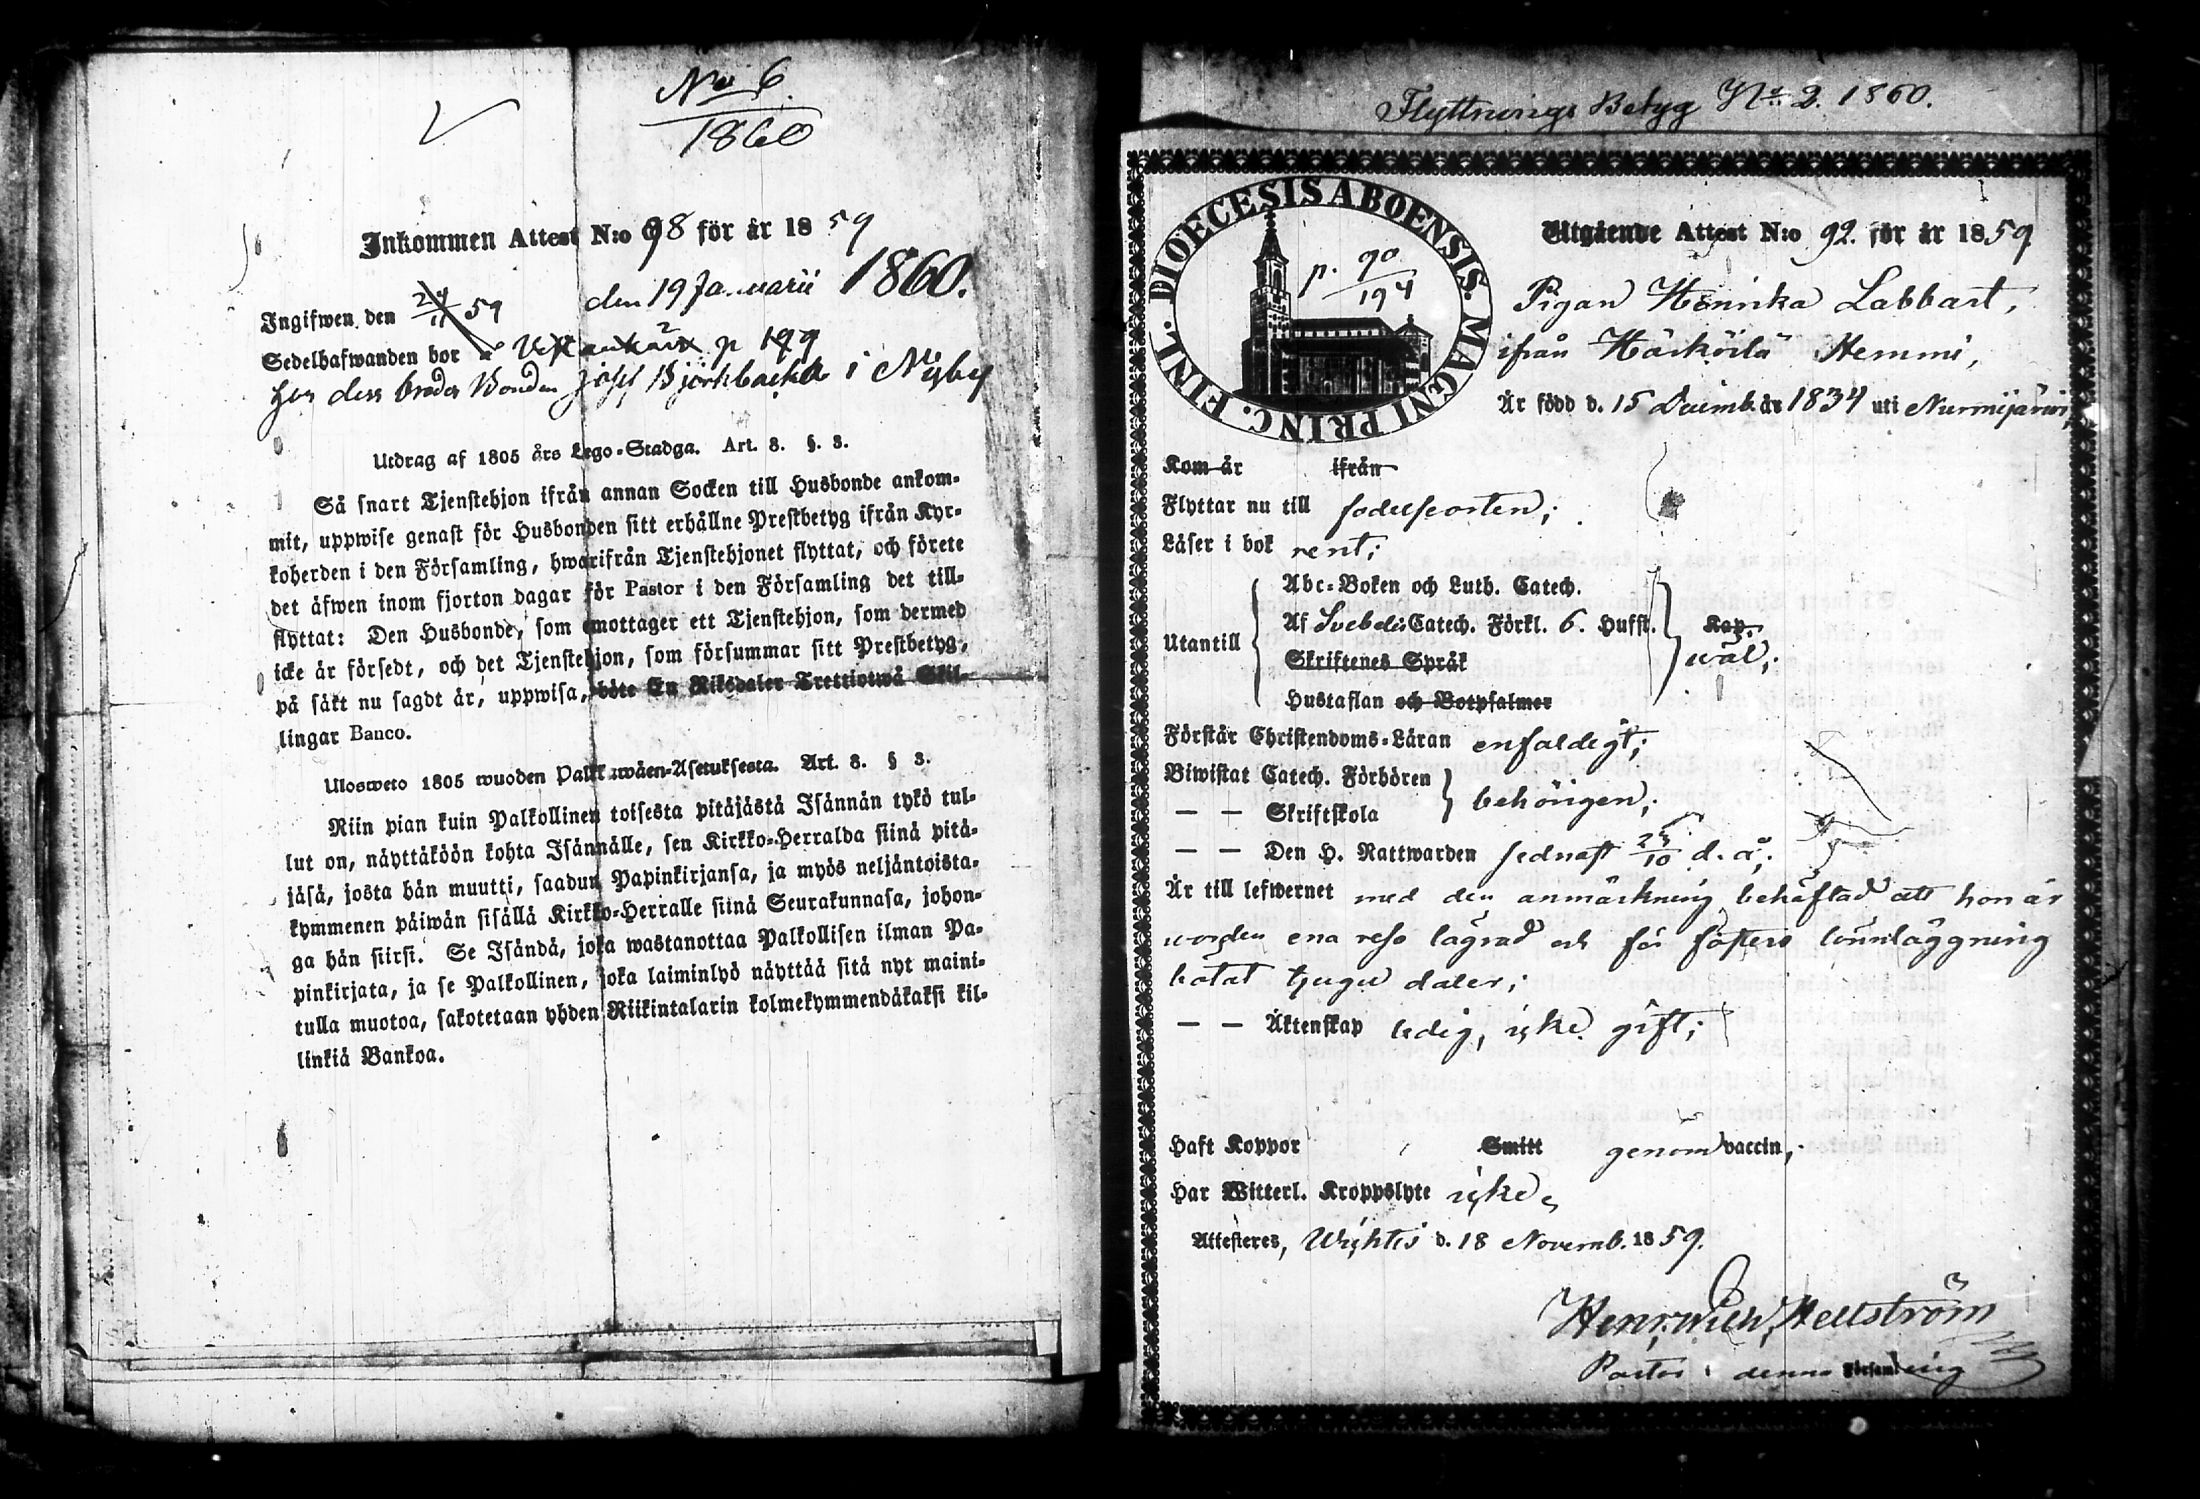 No 6.
1860
Inkommen Attest N:o 98 för år 1859
Ingifwen den 24/11 59 den 19 Januarii 1860.
Sedelhafwanden bor i p 199
hos dess broder Bonden Josef Björkbacka i Nŷby
Utdrag af 1805 års Lego-Stadga. Art. 8. §. 3.
Så snart Tjenstehjon ifrån annan Socken till Husbonde ankom-
mit, uppwise genast för Husbonden sitt erhållne Prestbetyg ifrån Kyr-
koherden i den Församling, hwarifrån Tjenstehjonet flyttat, och förete
det äfwen inom fjorton dagar för Pastor i den Församling det till-
flyttat: Den Husbonde, som emottager ett Tjenstehjon, som dermed
icke är försedt, och det Tjenstehjon, som försummar sitt Prestbetyg,
på sätt nu sagdt är, uppwisa, böte En Riksdaler Trettiotwå Skil-
lingar Banco.
Ulosweto 1805 wuoden Palkkawäen-Asetuksesta. Art. 8. § 3.
Niin pian kuin Palkollinen toisesta pitäjästä Isännän tykö tul-
lut on, näyttäköön kohta Isännälle, sen Kirkko-Herralda siinä pitä-
jäsä, josta hän muutti, saadun Papinkirjansa, ja myös neljäntoista-
kymmenen päiwän sisällä Kirkko-Herralle siinä Seurakunnasa, johon-
ga hän siirsi. Se Isändä, joka wastanottaa Palkollisen ilman Pa-
pinkirjata, ja se Palkollinen, joka laiminlyö näyttää sitä nyt maini-
tulla muotoa, sakotetaan yhden Riikintalarin kolmekymmendäkaksi kil-
linkiä Bankoa.
Flyttnings Betyg No 2. 1860.
DIOECESIS ABOENSIS. MAGNI PRINC. FINL.
p. 90
194
Utgående Attest N:o 92. för år 1859
Pigan Henrika Labbart,
ifrån Härköilä Hemmi,
Är född d. 15 Decemb. år 1834 uti Nurmijärwi,
Kom år ifrån
Flyttar nu till födelseorten;
Läser i bok rent;
Utantill
Abc-Boken och Luth. Catech.
Af Svebelii Catech. Förkl. 6. Hufst.
Skriftenes Språk
Hustaflan och Botpsalmer
Kap.
wäl;
Förstår Christendoms-Läran enfaldigt;
Biwistat Catech. Förhören
— — Skriftskola
behörigen;
— — Den H. Nattwarden sednast 23/10 d. å;
Är till lefwernet med den anmärkning behäftad att hon är
worden ena resa lägrad och för fosters lönnläggning
bötat tjugu daler;
— — Äktenskap ledig, icke gift;
Haft Koppor Smitt genom vaccin,
Har Witterl. Kroppslyte icke,
Attesteres, Wichtis d. 18 Novemb. 1859.
Henr. Wilh. Hellström
Pastor i denna Församling